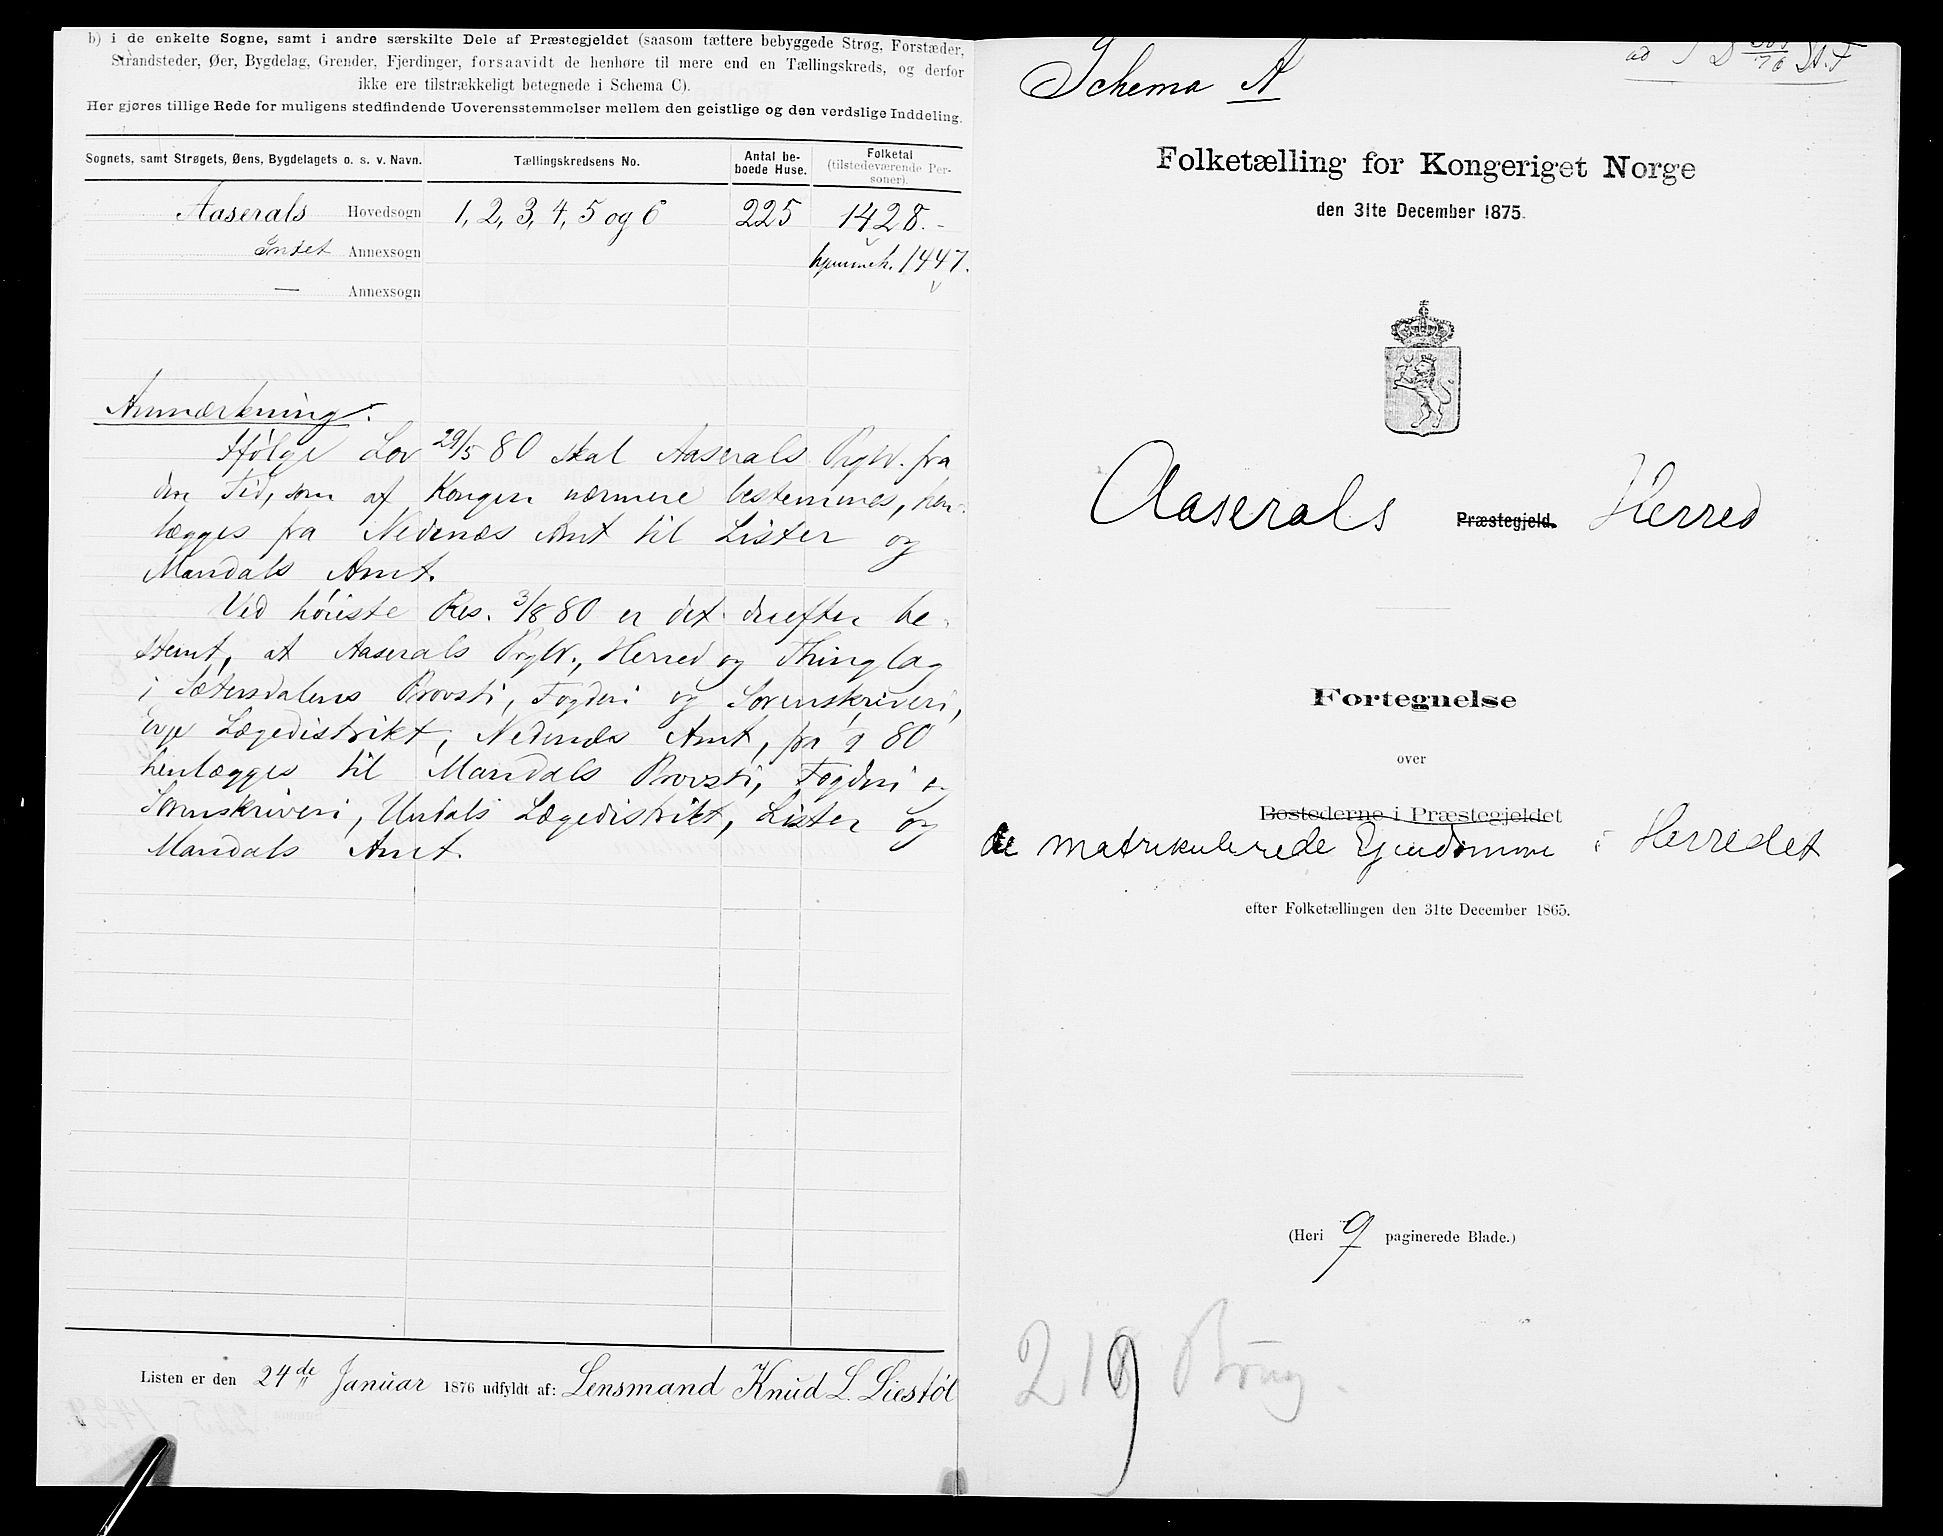 b) i de enkelte Sogne, samt i andre særskilte Dele af Præstegjeldet (saasom tættere bebyggede Strøg, Forstæder,
Strandsteder, Øer, Bygdelag, Grender, Fjerdinger, forsaavidt de henhøre til mere end en Tællingskreds, og derfor
ikke ere tilstrækkeligt betegnede i Schema C).
Her gjøres tillige Rede for muligens stedfindende Uoverensstemmelser mellem den geistlige og den verdslige Inddeling.
Sognets, samt Strøgets, Øens, Bygdelagets o. s. v. Navn. Tællingskredsens No. Antal be-boede Huse. Folketal (tilstedeværende Per-soner).
Aaserals Hovedsogn 1, 2, 3, 4, 5 og 6 225 1428.-
Intet Annexsogn hjemmeh. 1447.
— Annexsogn
Anmærkning:
Ifølge Lov 29/5 80 skal Aaserals Prgld. fra
den Tid, som af Kongen nærmere bestemmes, hen-
lægges fra Nedenæs Amt til Lister og
Mandals Amt.
Ved høieste Res. 3/8 80 er det derefter be-
stemt, at Aaserals Prgld., Herred og Thinglag
i Sætersdalens Provsti, Fogderi og Sorenskriveri,
Evje Lægedistrikt, Nedenæs Amt, fra 80
henlægges til Mandals Provsti, Fogderi og
Sorenskriveri, Undals Lægedistrikt, Lister og
Mandals Amt.
Listen er den 24de Januar 1876 udfyldt af: Lensmand Knud L. Liestøl
Schema A
Folketælling for Kongeriget Norge
den 31te December 1875.
Aaserals Præstegjeld. Herred
Fortegnelse
over
Bostederne i Præstegjeldet
de matrikulerede Ejendomme i Herredet
efter Folketællingen den 31te December 1865.
(Heri 9 paginerede Blade.)
219 Brug.